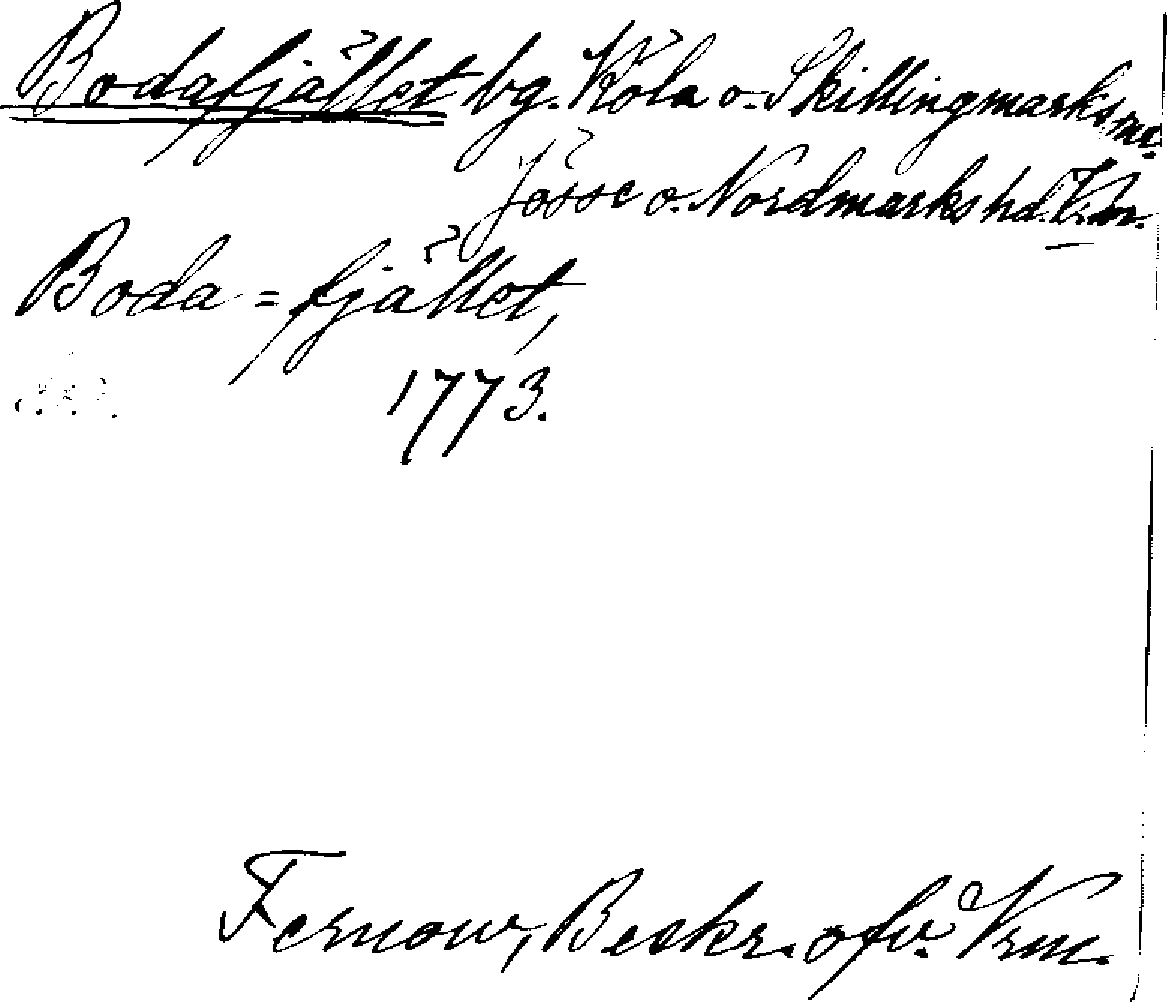 Bodafjället bg. Köla o. Skillingmarks snr.
Jösse o. Nordmarks hd. Vrm.
Boda=fjället,
1773.
Fernow, Beskr. öfv. Vrm.